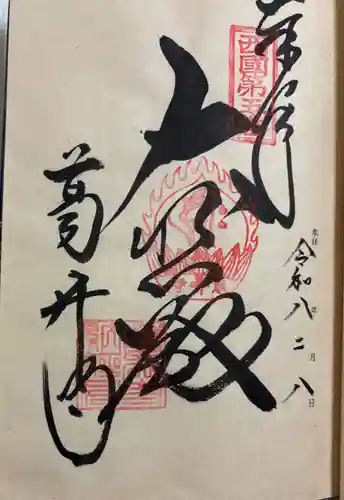 奉拝
西國第五番
令和八年二月八日
大悲殿
葛井寺